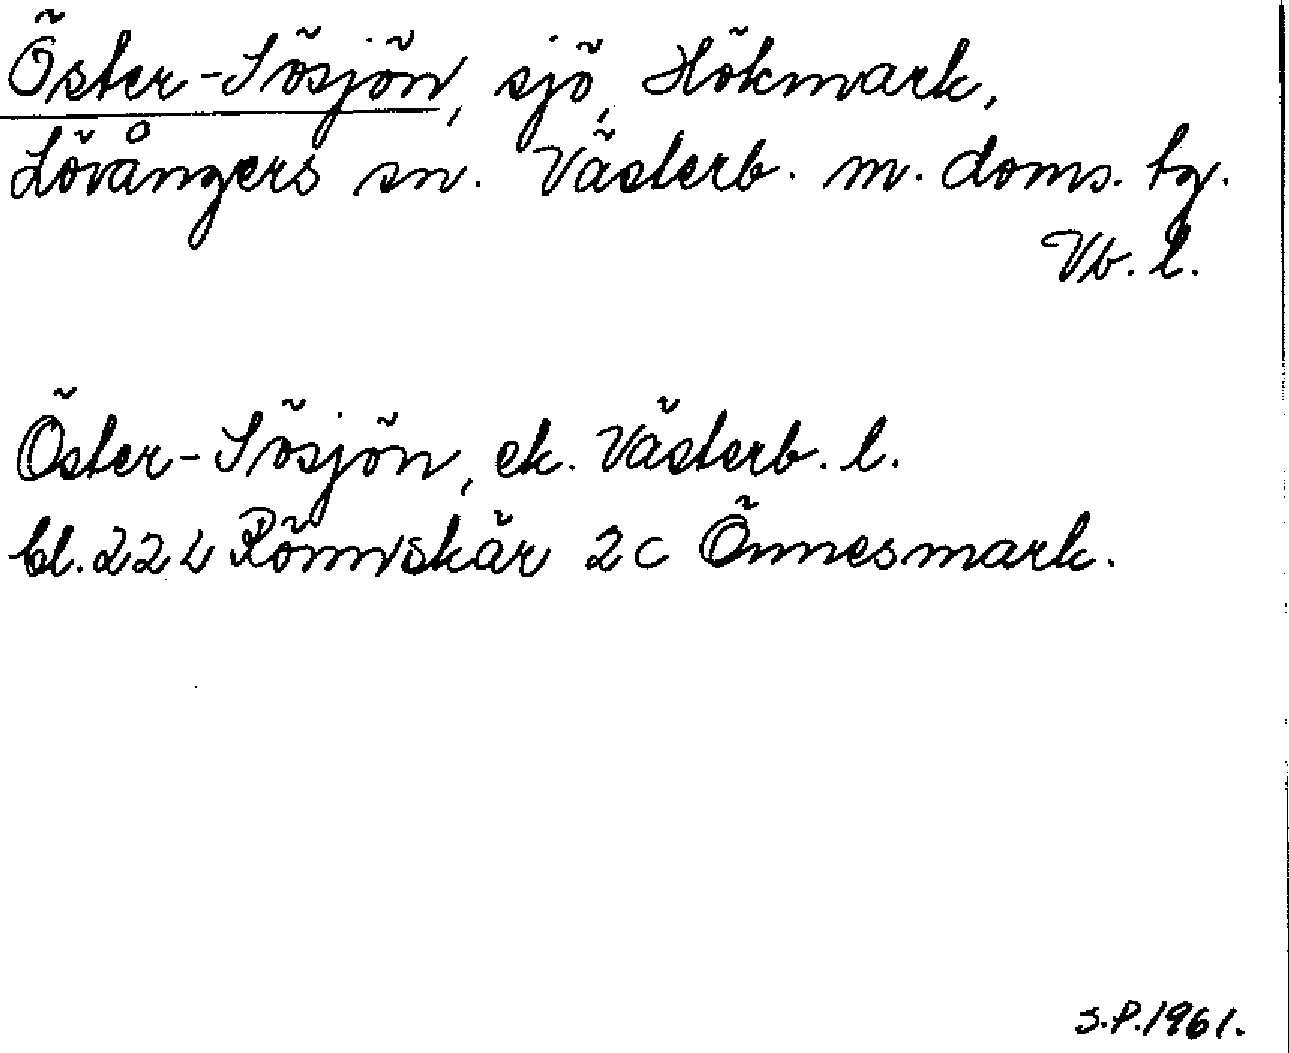 Öster-Sösjön, sjö, Hökmark,
Lövångers sn. Västerb. m. doms. tg.
Vb. l.
Öster-Sösjön, ek. Västerb. l.
bl. 22 L Rönnskär 2 c Önnesmark.
S.P. 1961.